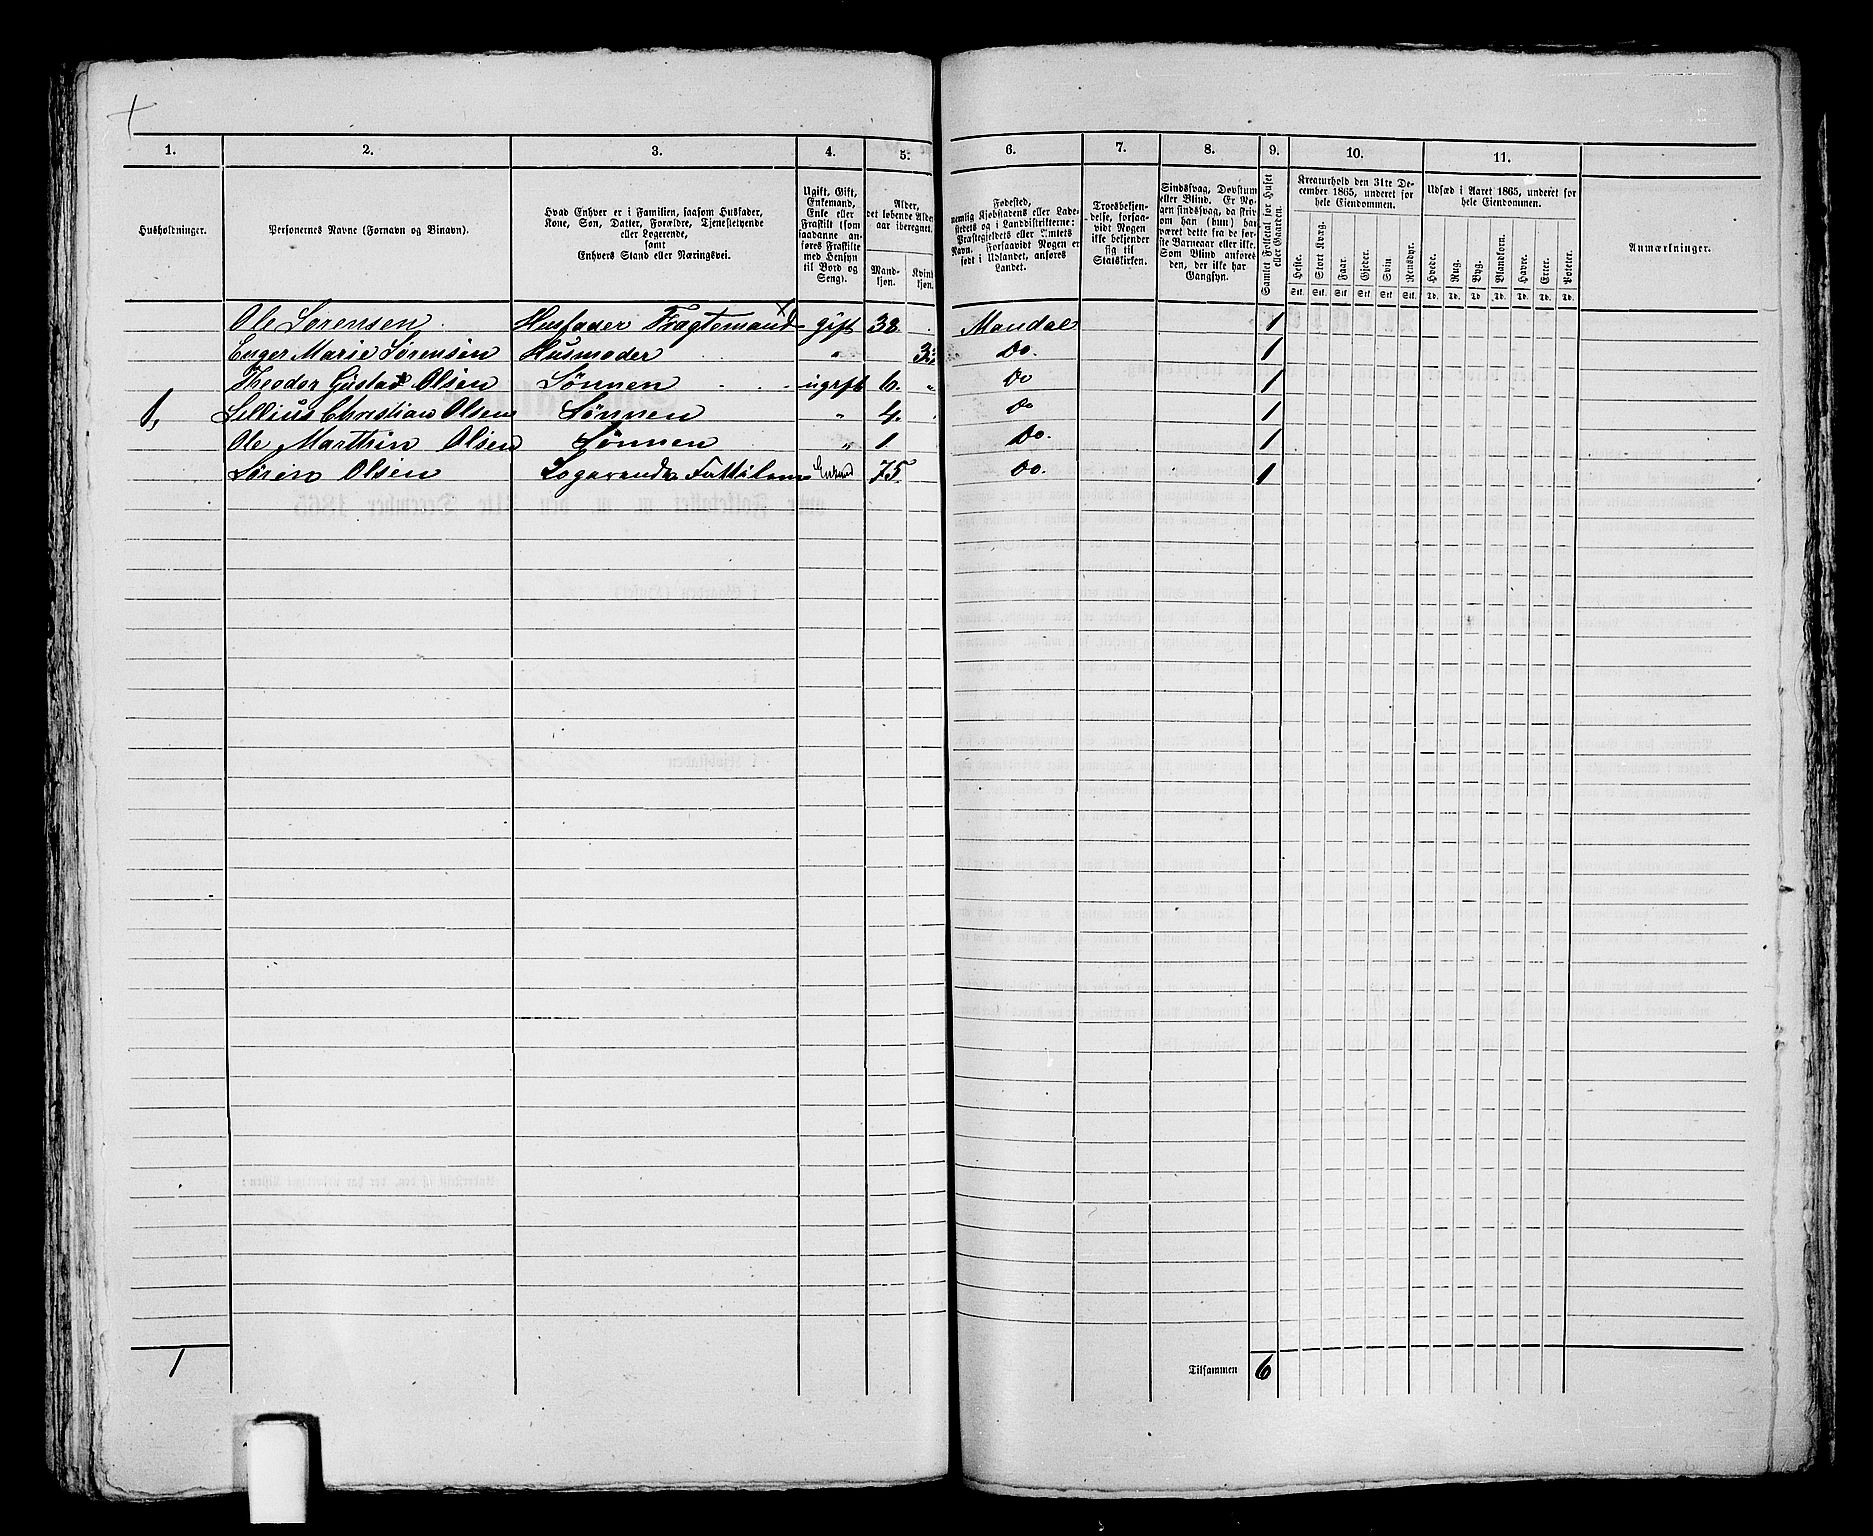 1. 2. 3. 4. 5. 6. 7. 8. 9. 10. 11.
Husholdninger.
Personernes Navne (Fornavn og Binavn).
Hvad Enhver er i Familien, saasom Husfader,
Kone, Søn, Datter, Forældre, Tjenestetyende
eller Logerende,
samt
Enhvers Stand eller Næringsvei.
Ugift, Gift,
Enkemand,
Enke eller
Fraskilt (som
saadanne an-
føres Fraskilte
med Hensyn
til Bord og
Seng).
Alder,
det løbende Alders-
aar iberegnet.
Mand-
kjøn.
Kvind-
kjøn.
Fødested,
nemlig Kjøbstadens eller Lade-
stedets og i Landdistrikterne:
Præstegjeldets eller Amtets
Navn. Forsaavidt Nogen er
født i Udlandet, anføres
Landet.
Troesbekjen-
delse, forsaa-
vidt Nogen
ikke bekjender
sig til
Statskirken.
Sindssvag, Døvstum
eller Blind. Er No-
gen sindssvag, da skriv
om han (hun) har
været dette fra de før-
ste Barneaar eller ikke.
Som Blind anføres
den, der ikke har
Gangsyn.
Samlet Folketal for Huset
eller Gaarden.
Kreaturhold den 31te De-
cember 1865, underet for
hele Eiendommen.
Heste. Stort Kvæg. Faar. Gjeder. Svin Rensdyr.
Stk. Stk. Stk. Stk. Stk. Stk.
Udsæd i Aaret 1865, underet for
hele Eiendommen.
Hvede. Rug. Byg. Blandkorn. Havre. Erter. Poteter.
Td. Td. Td. Td. Td. Td. Td.
Anmærkninger.
Ole Sørensen Husfader Fragtemand gift 38 Mandal 1
Marie Sørensen Husmoder " Do. 1
Theodor Gustav Olsen Sønnen ugift 6. " Do 1
1, Sillius Christian Olsen Sønnen " 4. Do 1
Ole Marthin Olsen Sønnen " 1 Do. 1
Søren Olsen 75 Do. 1
1 Tilsammen 6